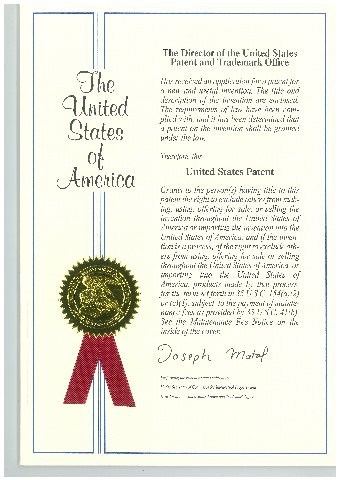 The
United
States
of
America
The Director of the United States
Patent and Trademark Office
Has received an application for a patent for
a new and useful invention. The title and
description of the invention are enclosed.
The requirements of law have been com-
plied with, and it has been determined that
a patent on the invention shall be granted
under the law.
Therefore, this
United States Patent
Grants to the person(s) having title to this
patent the right to exclude others from mak-
ing, using, offering for sale, or selling the
invention throughout the United States of
America or importing the invention into the
United States of America, and if the inven-
tion is a process, of the right to exclude oth-
ers from using, offering for sale or selling
throughout the United States of America, or
importing into the United States of
America, products made by that process,
for the term set forth in 35 U.S.C. 154(a)(2)
or (c)(1), subject to the payment of mainte-
nance fees as provided by 35 U.S.C. 41(b).
See the Maintenance Fee Notice on the
inside of the cover.
Joseph Matal